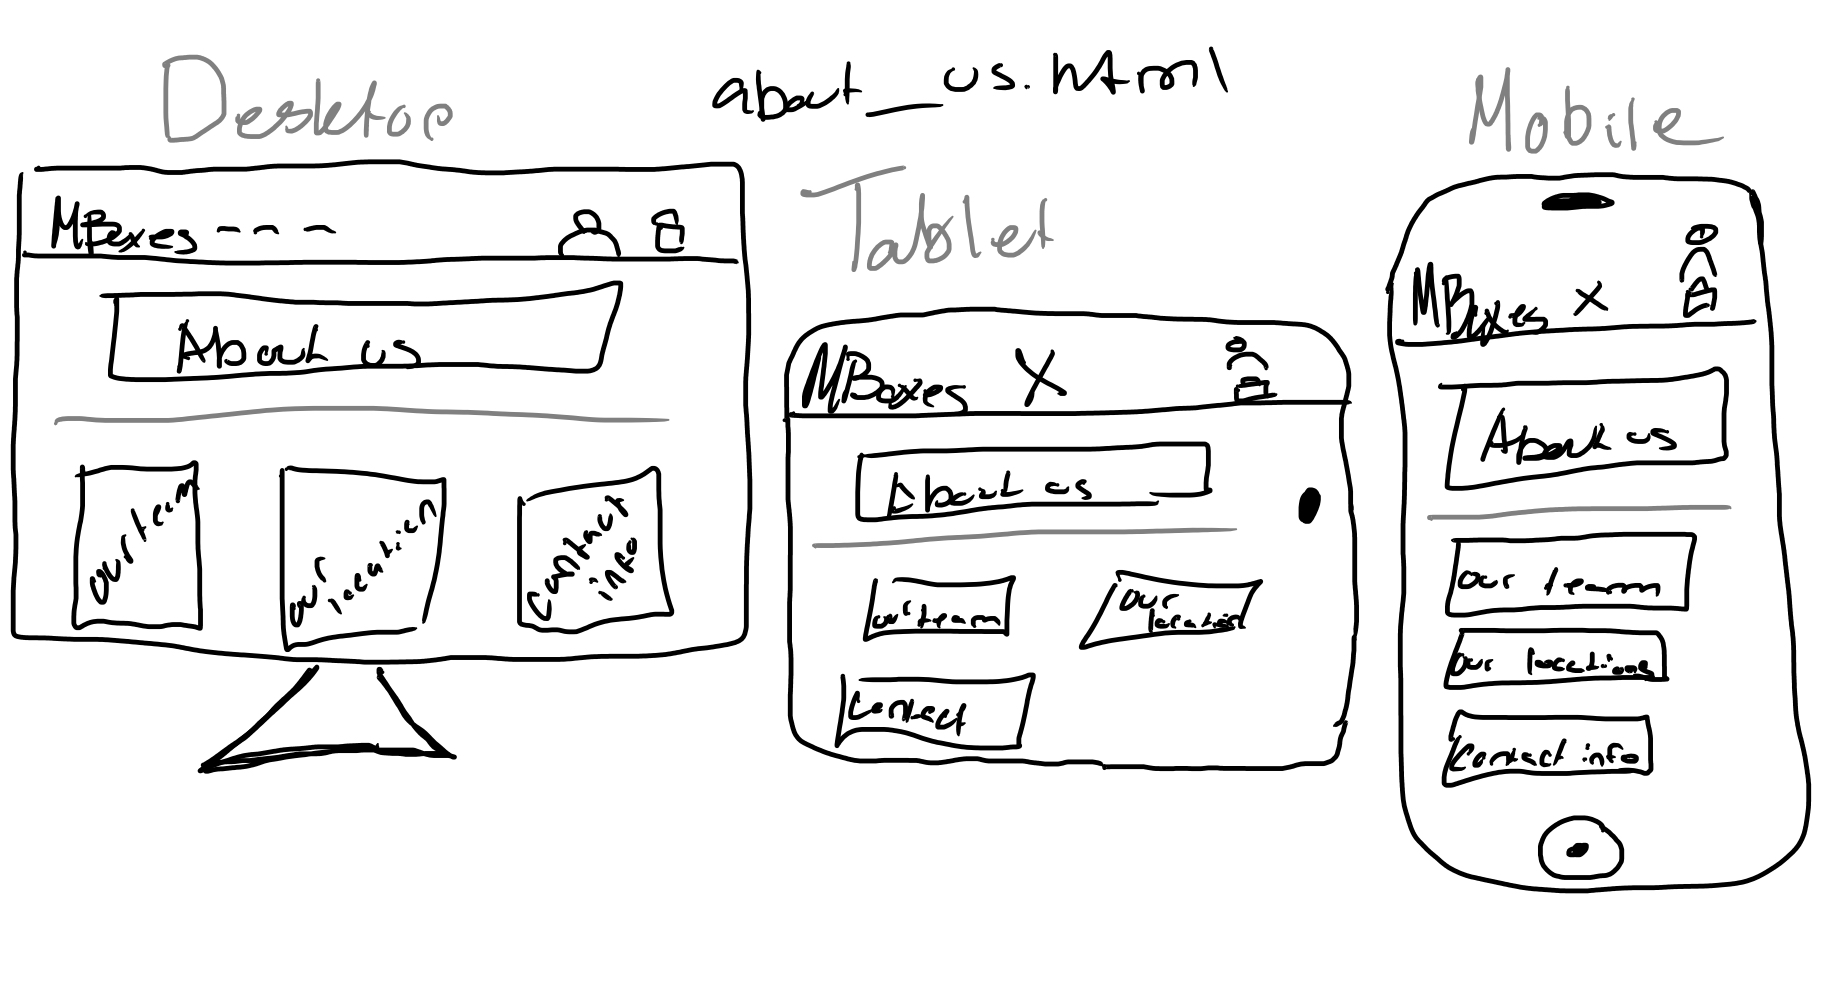 Desktop
about_us.html
Mobile
Tablet
MBoxes
About us
our team
our
location
contact
info
MBoxes X
About us
our team
our
location
contact
MBoxes X
About us
our team
our locations
contact info